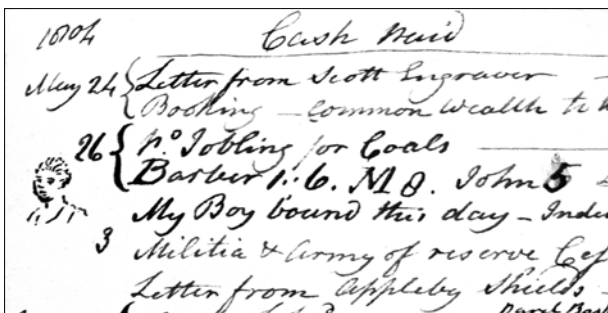 1804 Cash Paid
May 24 Letter from Scott Engraver —
Booking — Common Wealth to
26 Jobling for Coals
Barber 1:6. John 5
My Boy bound this day — Inde
3 Militia & Army of reserve Cess
Letter from Appleby Shields —